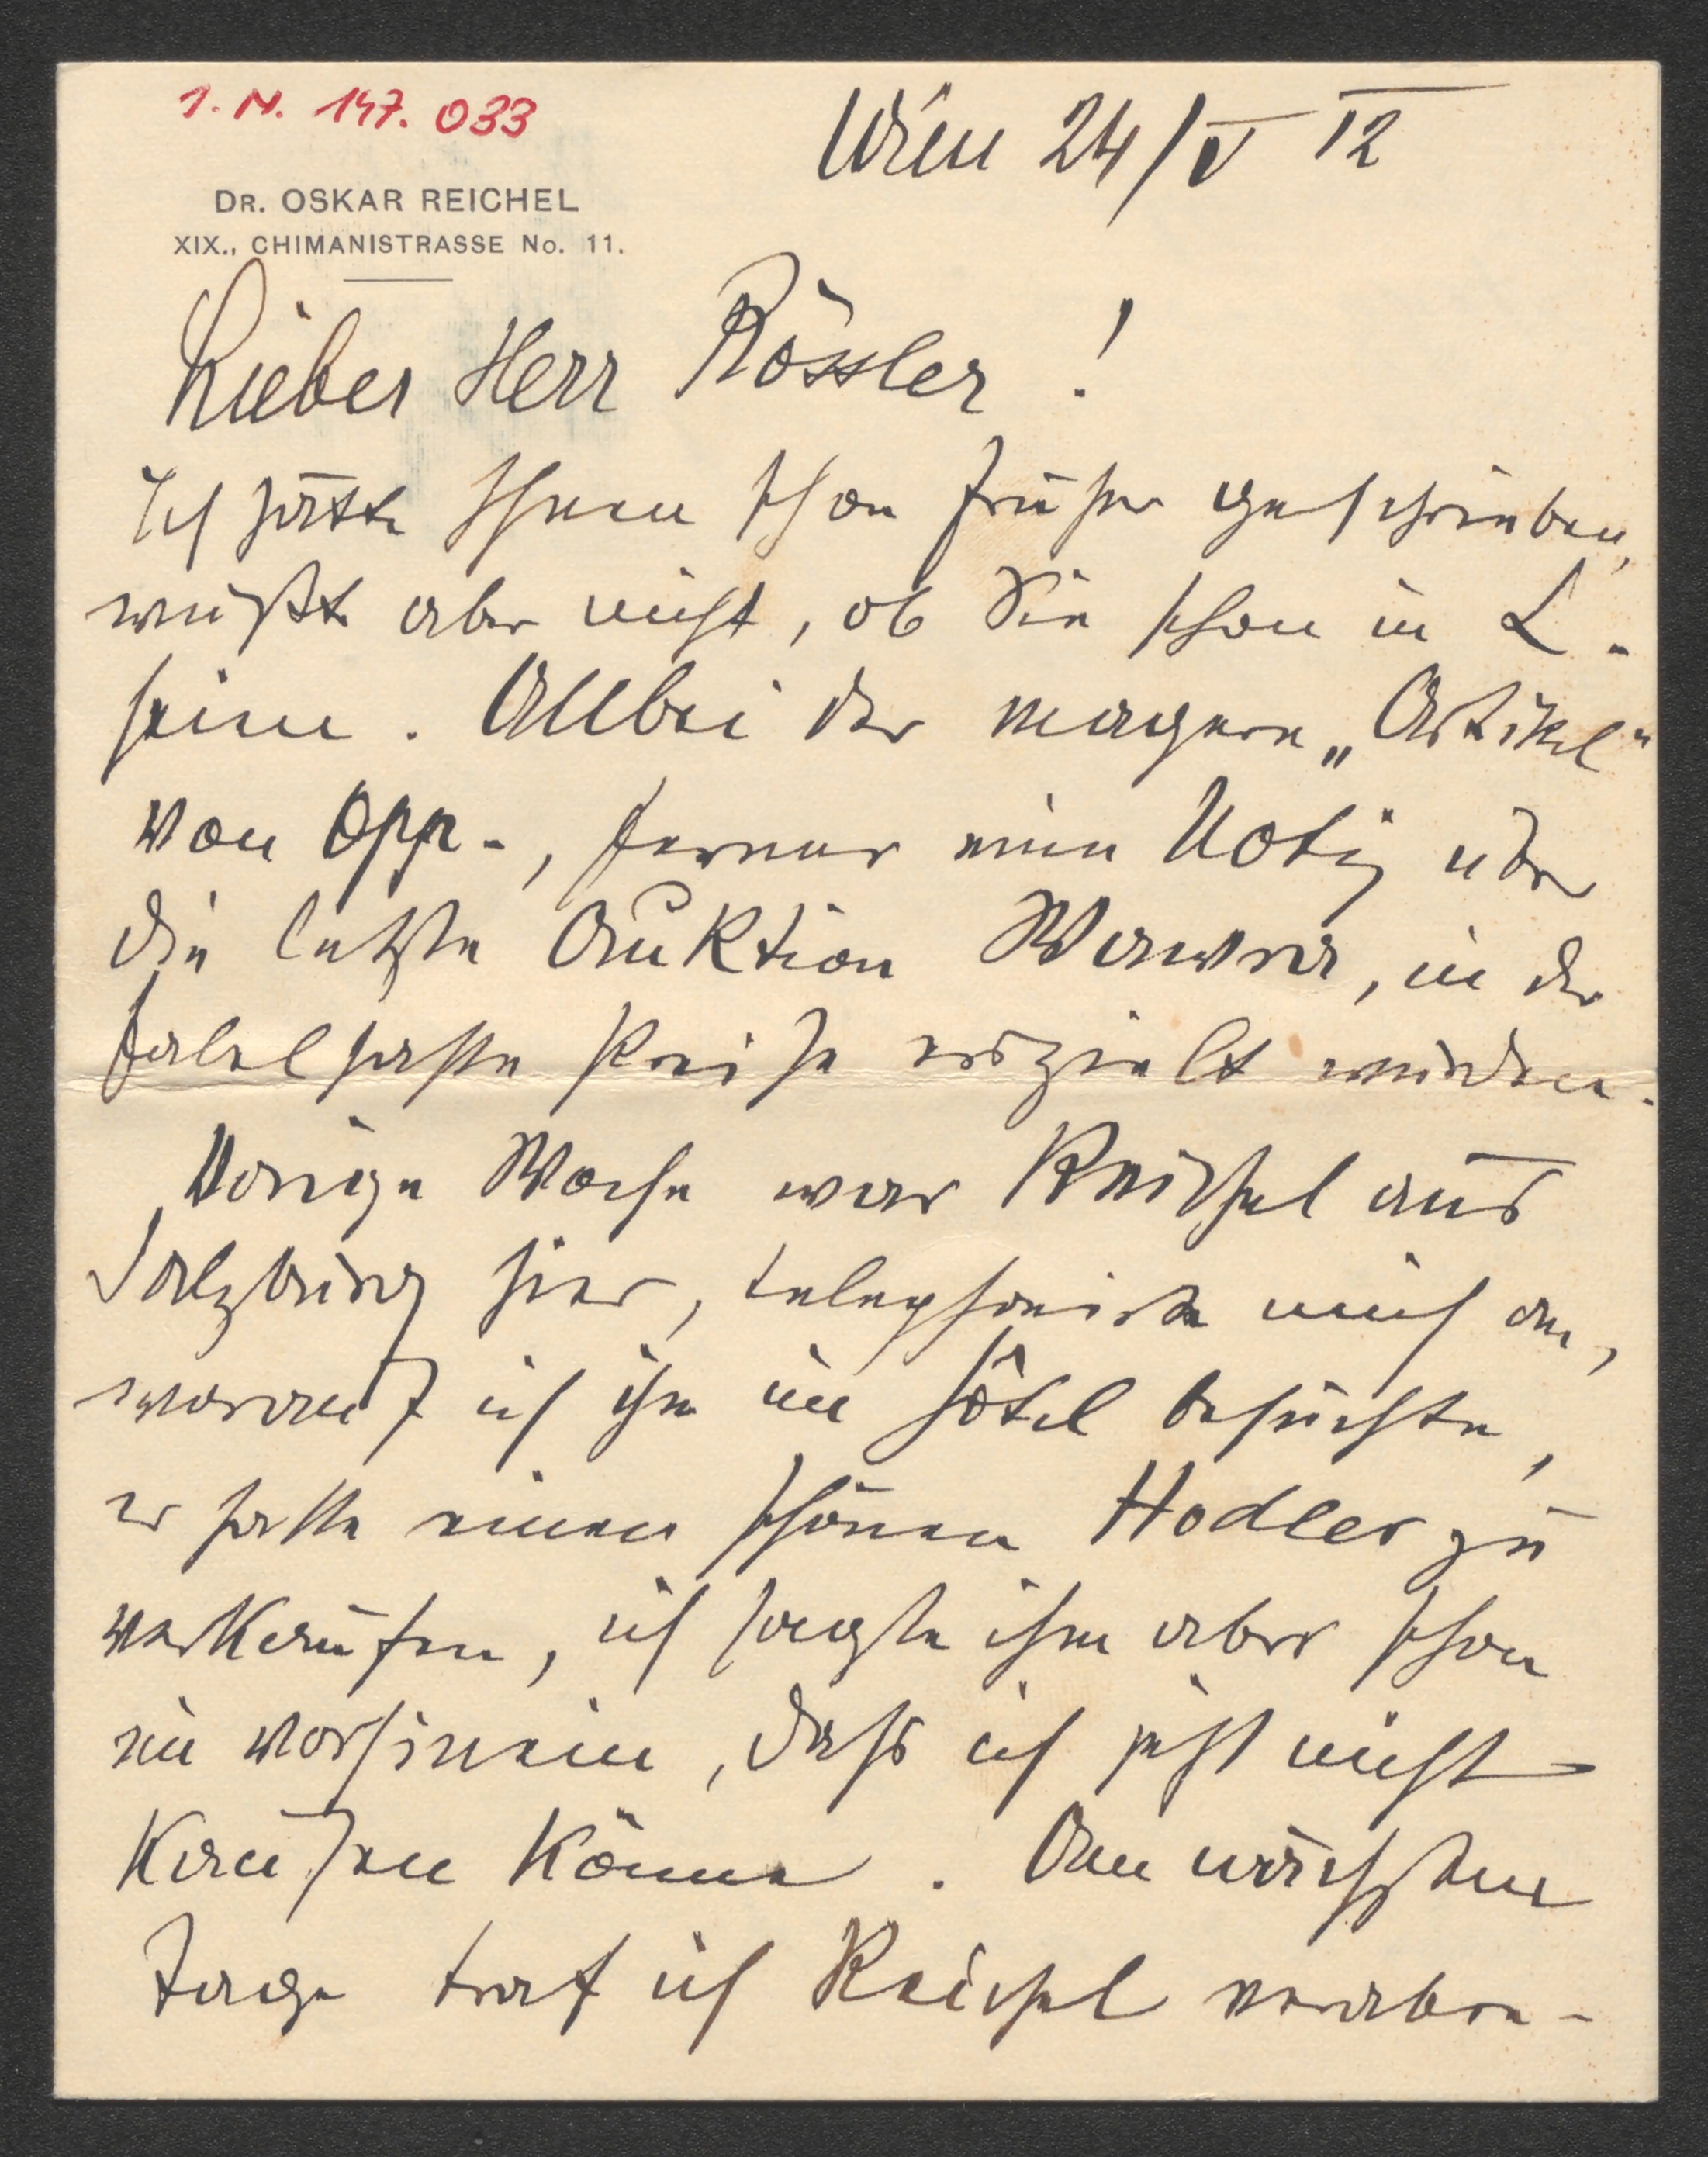 I.N. 147.033
Wien 24/V 12
DR. OSKAR REICHEL
XIX., CHIMANISTRASSE No. 11.
Lieber Herr Rössler!
Ich hätte Ihnen schon früher geschrieben,
wußte aber nicht, ob Sie schon in L.
seien. Allbei der magere „Artikel“
von Opp-, ferner eine Notiz über
die letzte Auktion Wawra, in der
fabelhafte Preise erzielt wurden.
Vorige Woche war Reichel aus
Salzburg hier, telephonirte mich an,
worauf ich ihn im Hôtel besuchte,
er hatte einen schönen Hodler zu
verkaufen, ich sagte ihm aber schon
im vorhinein, dass ich jetzt nicht
kaufen könne. Am nächsten
Tage traf ich Reichel verabre-